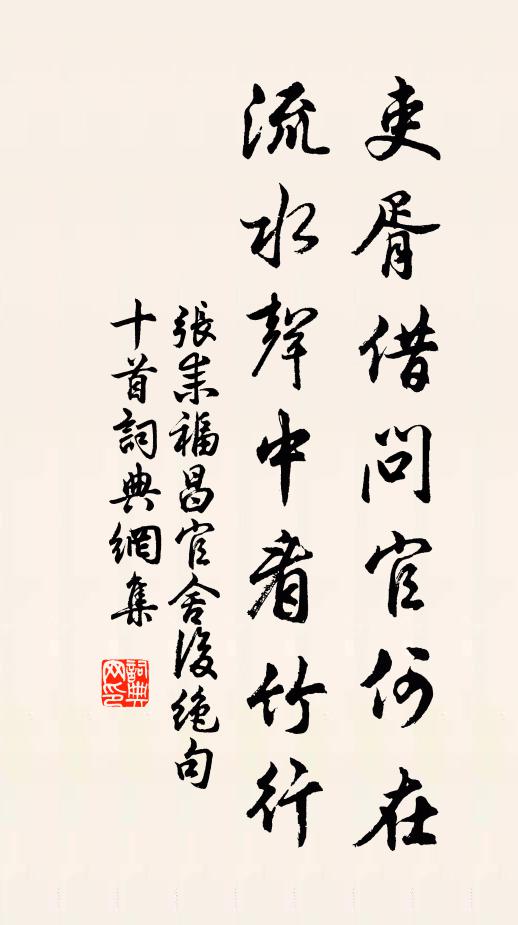 吏胥借問官何在
流水聲中看竹行
張耒福昌官舍後絕句
十首詞典網集
詞典网印